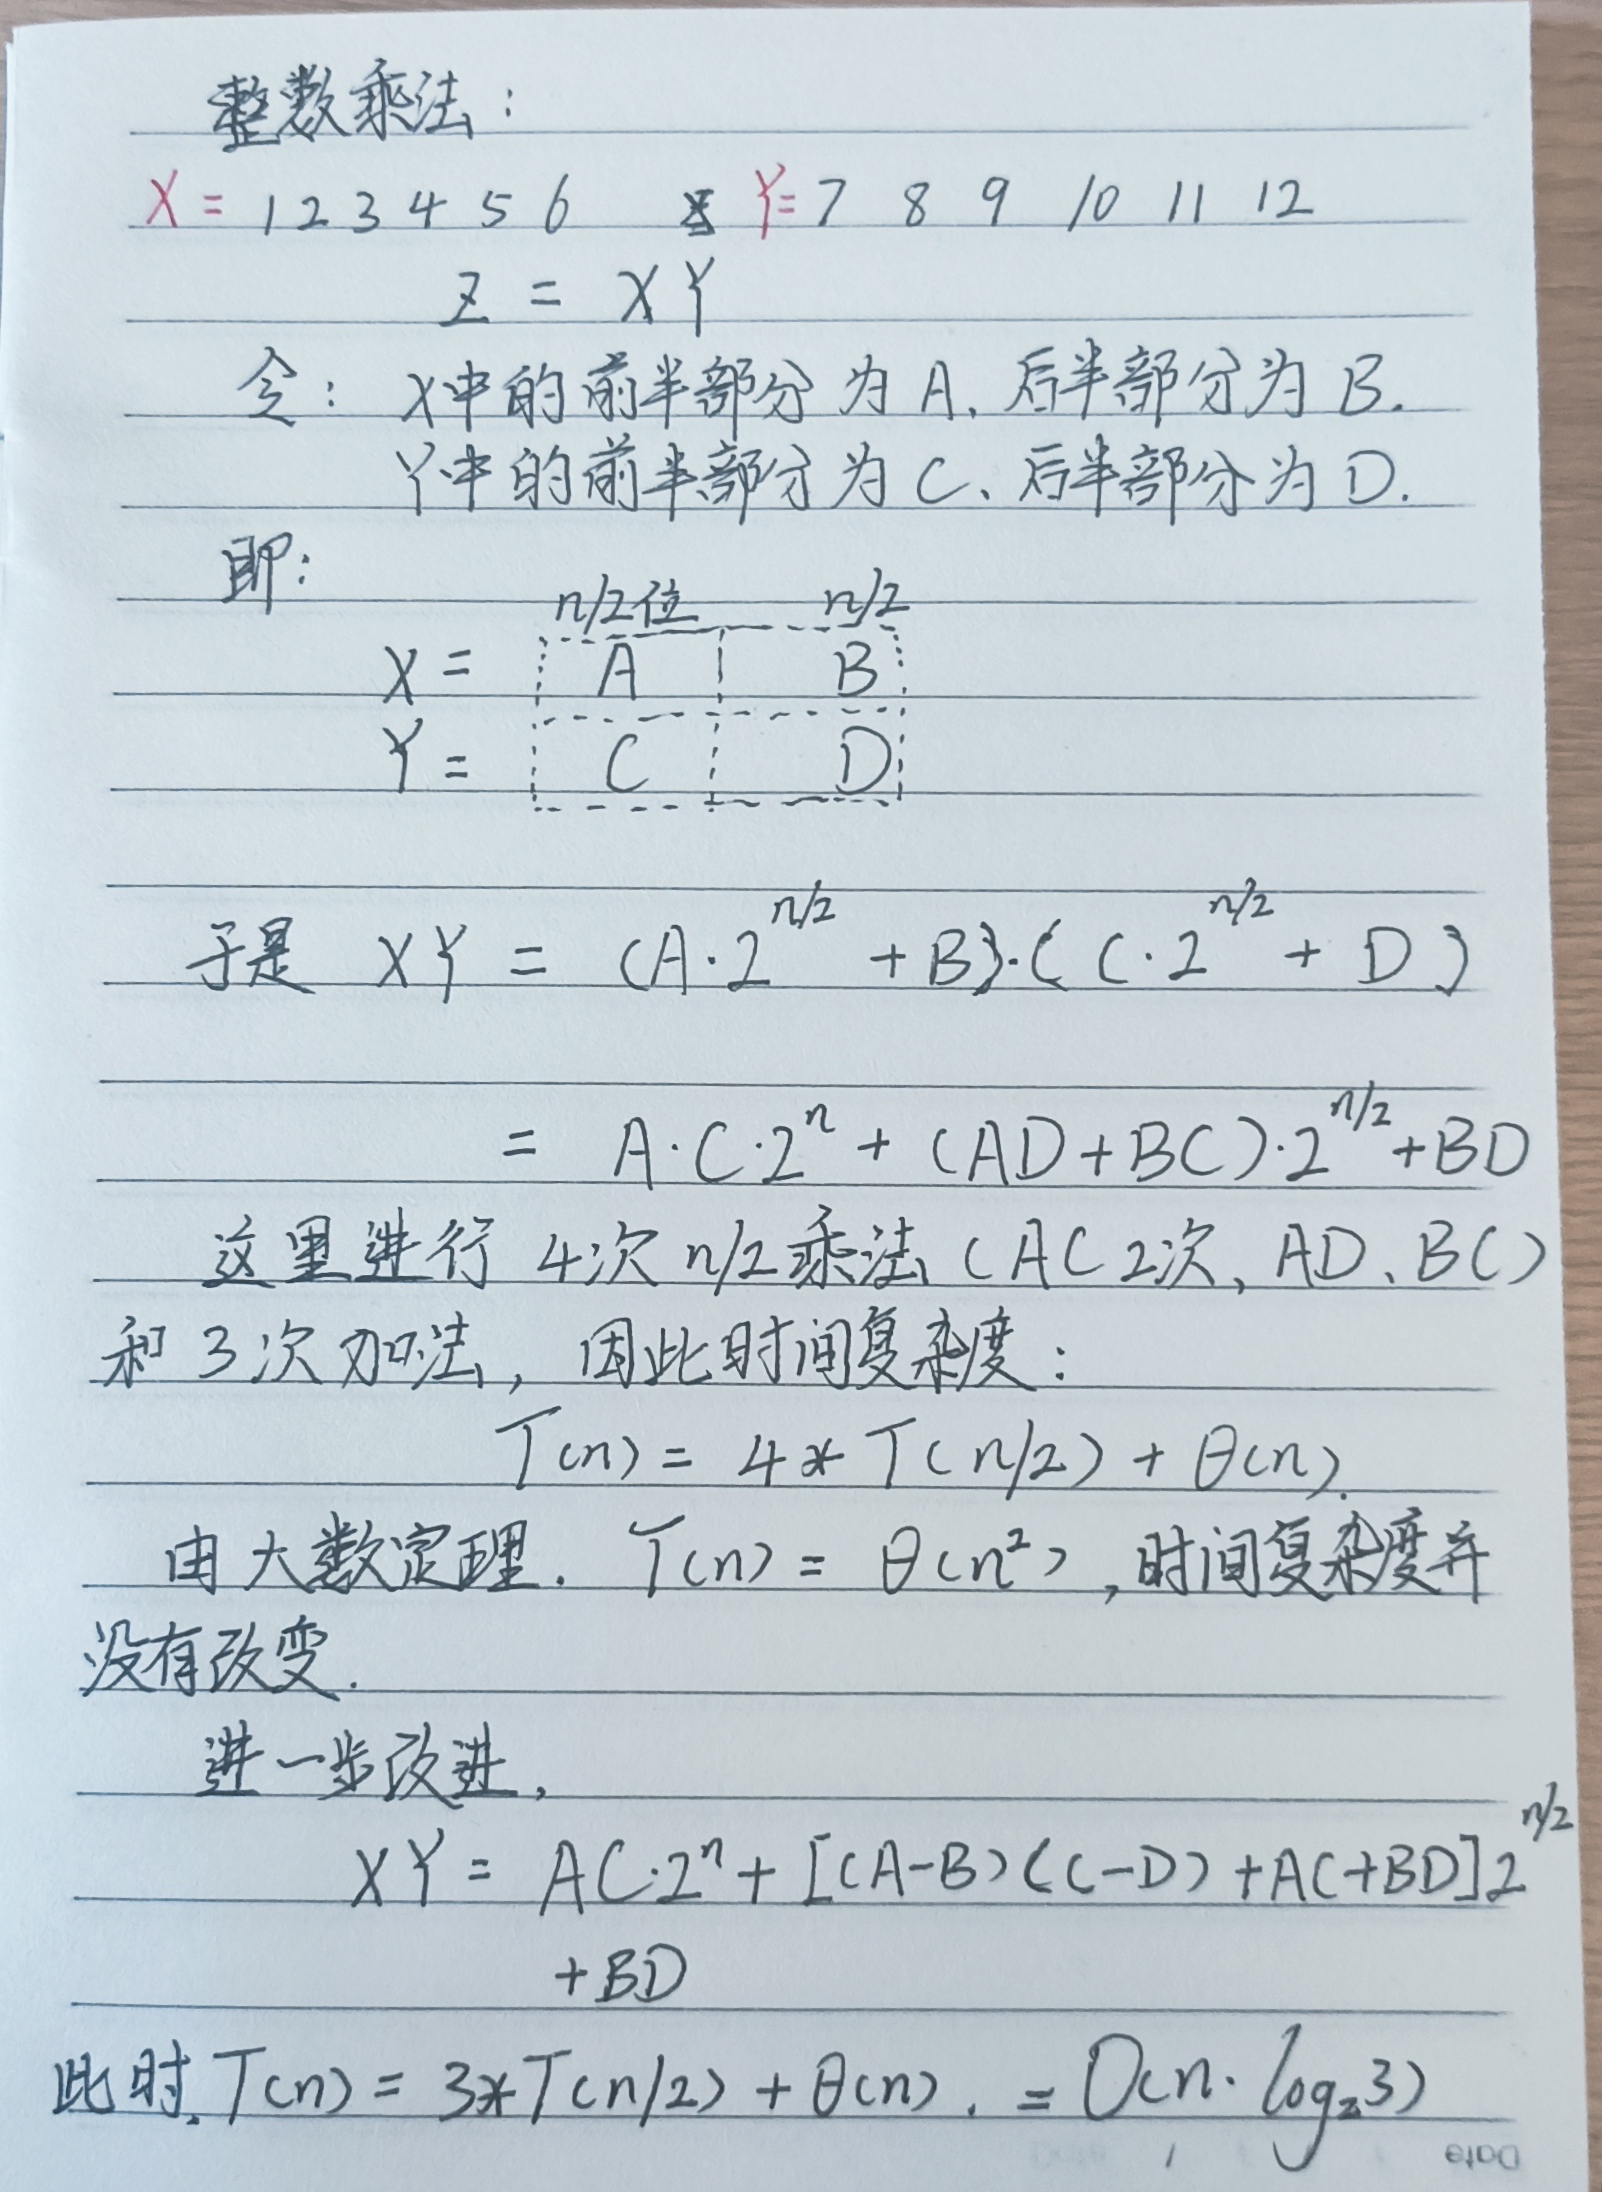 整数乘法:
X = 1 2 3 4 5 6 Y= 7 8 9 10 11 12
Z = XY
令: X中的前半部分为A、后半部分为B.
Y中的前半部分为C、后半部分为D.
即:
n/2位 n/2
X = A B
Y = C D
于是 XY = (A·2^{n/2} + B)·(C·2^{n/2} + D)
= A·C·2^n + (AD+BC)·2^{n/2}+BD
这里进行4次n/2乘法(AC2次、AD、BC)
和3次加法,因此时间复杂度:
T(n) = 4*T(n/2) + θ(n).
由大数定理. T(n) = θ(n²),时间复杂度并
没有改变.
进一步改进,
XY = AC·2^n + [(A-B)(C-D)+AC+BD]2^{n/2}
+BD
此时.T(n) = 3*T(n/2) + θ(n). = O(n·log₂3)